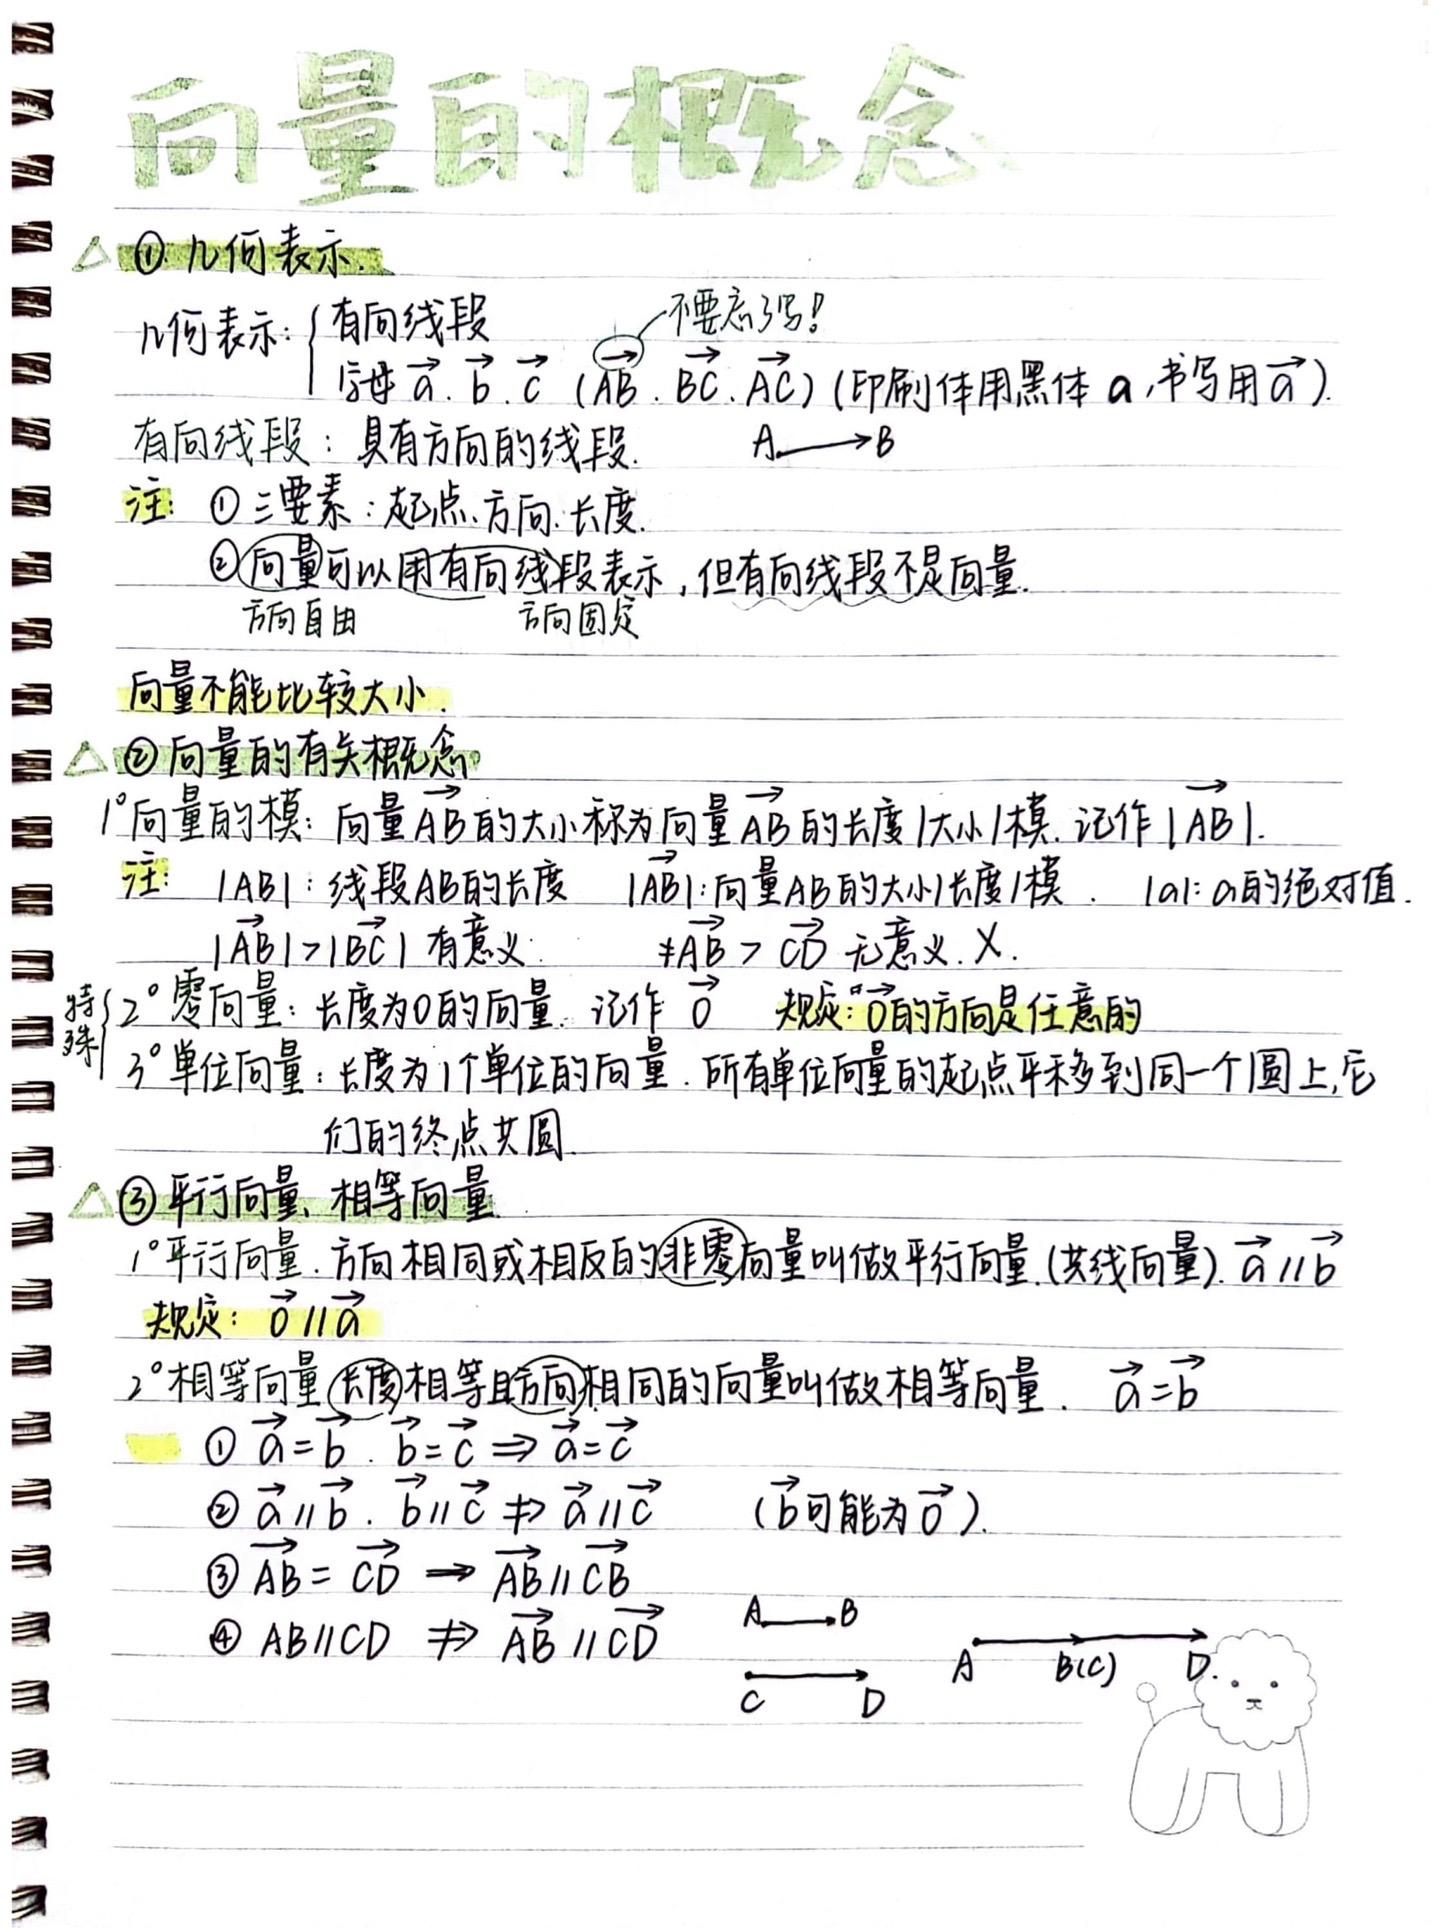 向量的概念
① 几何表示.
不要忘了写!
几何表示: { 有向线段
字母 \vec{a}. \vec{b}. \vec{c} (\vec{AB}. \vec{BC}. \vec{AC}) (印刷体用黑体 a, 书写用 \vec{a}).
有向线段: 具有方向的线段. A B
注: ① 三要素: 起点、方向、长度.
② 向量可以用有向线段表示, 但有向线段不是向量.
方向自由 方向固定
向量不能比较大小.
② 向量的有关概念
1° 向量的模: 向量 \vec{AB} 的大小称为向量 \vec{AB} 的长度/大小/模. 记作 |\vec{AB}|.
注: |AB|: 线段AB的长度 |\vec{AB}|: 向量AB的大小/长度/模. |a|: a的绝对值.
|\vec{AB}|>|\vec{BC}| 有意义. \vec{AB} > \vec{CD} 无意义. X.
特殊 { 2° 零向量: 长度为0的向量. 记作 \vec{0} 规定: \vec{0}的方向是任意的
3° 单位向量: 长度为1个单位的向量. 所有单位向量的起点平移到同一个圆上, 它
们的终点共圆.
③ 平行向量、相等向量
1° 平行向量. 方向相同或相反的非零向量叫做平行向量. (共线向量). \vec{a}//\vec{b}
规定: \vec{0}//\vec{a}
2° 相等向量 长度相等且方向相同的向量叫做相等向量. \vec{a}=\vec{b}
① \vec{a}=\vec{b}. \vec{b}=\vec{c} ⇒ \vec{a}=\vec{c}
② \vec{a}//\vec{b}. \vec{b}//\vec{c} ⇏ \vec{a}//\vec{c} (\vec{b}可能为\vec{0}).
③ \vec{AB}=\vec{CD} ⇒ \vec{AB}//\vec{CB}
④ AB//CD ⇏ \vec{AB}//\vec{CD}
A B
C D
A B(C) D.